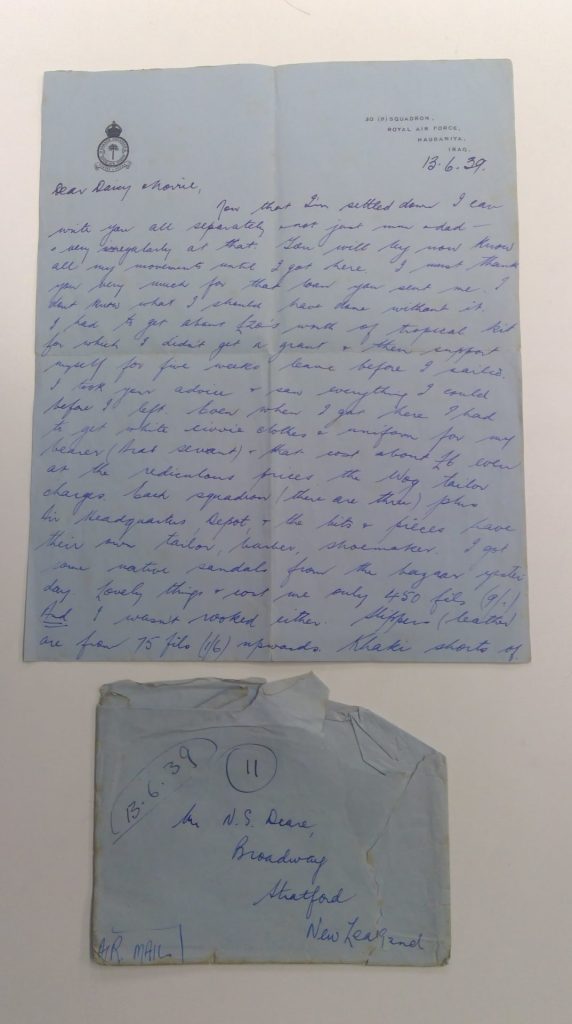 30 (B) SQUADRON,
ROYAL AIR FORCE,
HABBANIYA,
IRAQ.
13.6.39.
Dear Daisy & Norrie,
Now that I'm settled down I can
write you all separately & not just mum & dad –
& very irregularly at that. You will by now know
all my movements until I got here. I must thank
you very much for that loan you sent me. I
dont know what I should have done without it.
I had to get about £20's worth of tropical kit
for which I didn't get a grant & then support
myself for five weeks leave before I sailed.
I took your advice & saw everything I could
before I left. Even when I got here I had
to get white civvie clothes & uniform for my
bearer (Arab servant) & that cost about £6 even
at the rediculous prices the Wog tailor
charges. Each squadron (there are three) plus
Air Headquarters, Depot, & the bits & pieces have
their own tailor, barber, shoemaker. I got
some native sandals from the bazaar yester
day. Lovely things & cost me only 450 fils (9/-)
And I wasn't rooked either. Slippers (leather)
are from 75 fils (1/6) upwards. Khaki shorts of
13.6.39
11
Mr N.S. Deare,
Broadway
Stratford
New Zealand
AIR MAIL